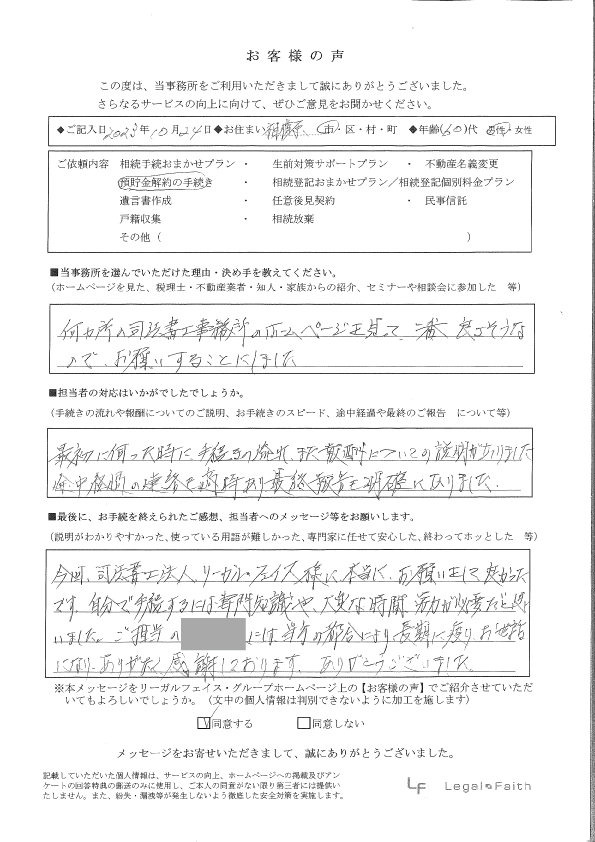 お客様の声
この度は、当事務所をご利用いただきまして誠にありがとうございました。
さらなるサービスの向上に向けて、ぜひご意見をお聞かせください。
◆ご記入日 2023年10月24日◆お住まい 相模原 市・区・村・町 ◆年齢(60)代 男性・女性
ご依頼内容 相続手続おまかせプラン ・ 生前対策サポートプラン ・ 不動産名義変更
預貯金解約の手続き ・ 相続登記おまかせプラン／相続登記個別料金プラン
遺言書作成 ・ 任意後見契約 ・ 民事信託
戸籍収集 ・ 相続放棄
その他（ ）
■当事務所を選んでいただけた理由・決め手を教えてください。
（ホームページを見た、税理士・不動産業者・知人・家族からの紹介、セミナーや相談会に参加した 等）
何カ所の司法書士事務所のホームページを見て、一番良さそうな
ので、お願いすることにしました
■担当者の対応はいかがでしたでしょうか。
（手続きの流れや報酬についてのご説明、お手続きのスピード、途中経過や最終のご報告 について等）
最初に伺った時に、手続きの流れ、また報酬についての説明がありました
途中経過の連絡も適時あり最終報告も明確にありました。
■最後に、お手続を終えられたご感想、担当者へのメッセージ等をお願いします。
（説明がわかりやすかった、使っている用語が難しかった、専門家に任せて安心した、終わってホッとした 等）
今回、司法書士法人リーガルフェイス様に、本当に、お願いして良かった
です。自分で手続するには専門知識や、大変な時間、労力が必要だと思
いました。ご担当の には当方の都合により長期に渡りお世話
になり、ありがたく感謝しております。ありがとうございました。
※本メッセージをリーガルフェイス・グループホームページ上の【お客様の声】でご紹介させていただ
いてもよろしいでしょうか。（文中の個人情報は判別できないように加工を施します）
☑同意する □同意しない
メッセージをお寄せいただきまして、誠にありがとうございました。
記載していただいた個人情報は、サービスの向上、ホームページへの掲載及びアン
ケートの回答特典の郵送のみに使用し、ご本人の同意がない限り第三者には提供い
たしません。また、紛失・漏洩等が発生しないよう徹底した安全対策を実施します。
LF Legal Faith